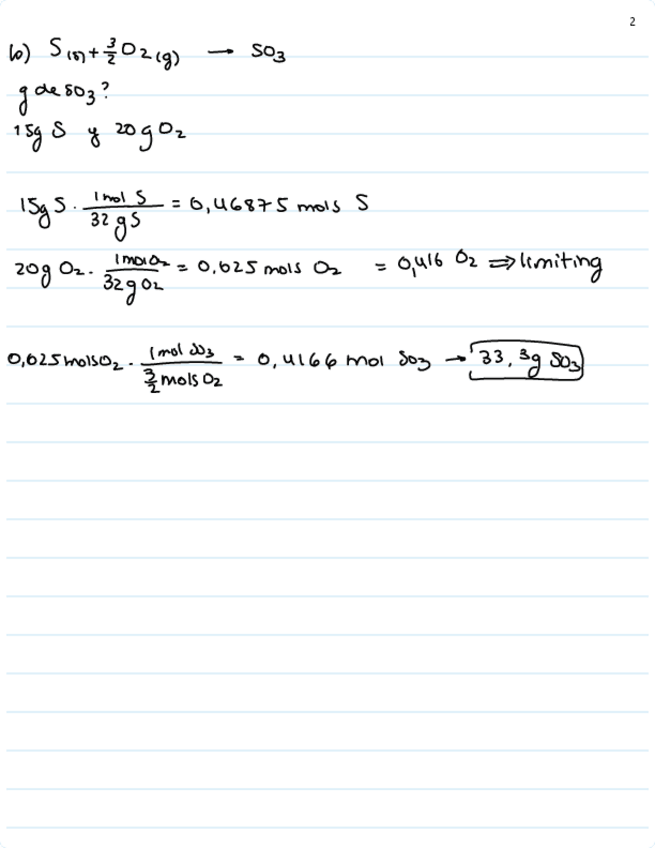 2
b) S(s) + 3/2 O2(g) → SO3
g de SO3?
15g S y 20g O2
15g S · 1 mol S / 32 g S = 0,46875 mols S
20g O2 · 1 mol O2 / 32 g O2 = 0,625 mols O2 = 0,416 O2 ⇒ limiting
0,625 mols O2 · 1 mol SO3 / 3/2 mols O2 = 0,4166 mol SO3 → 33,3g SO3